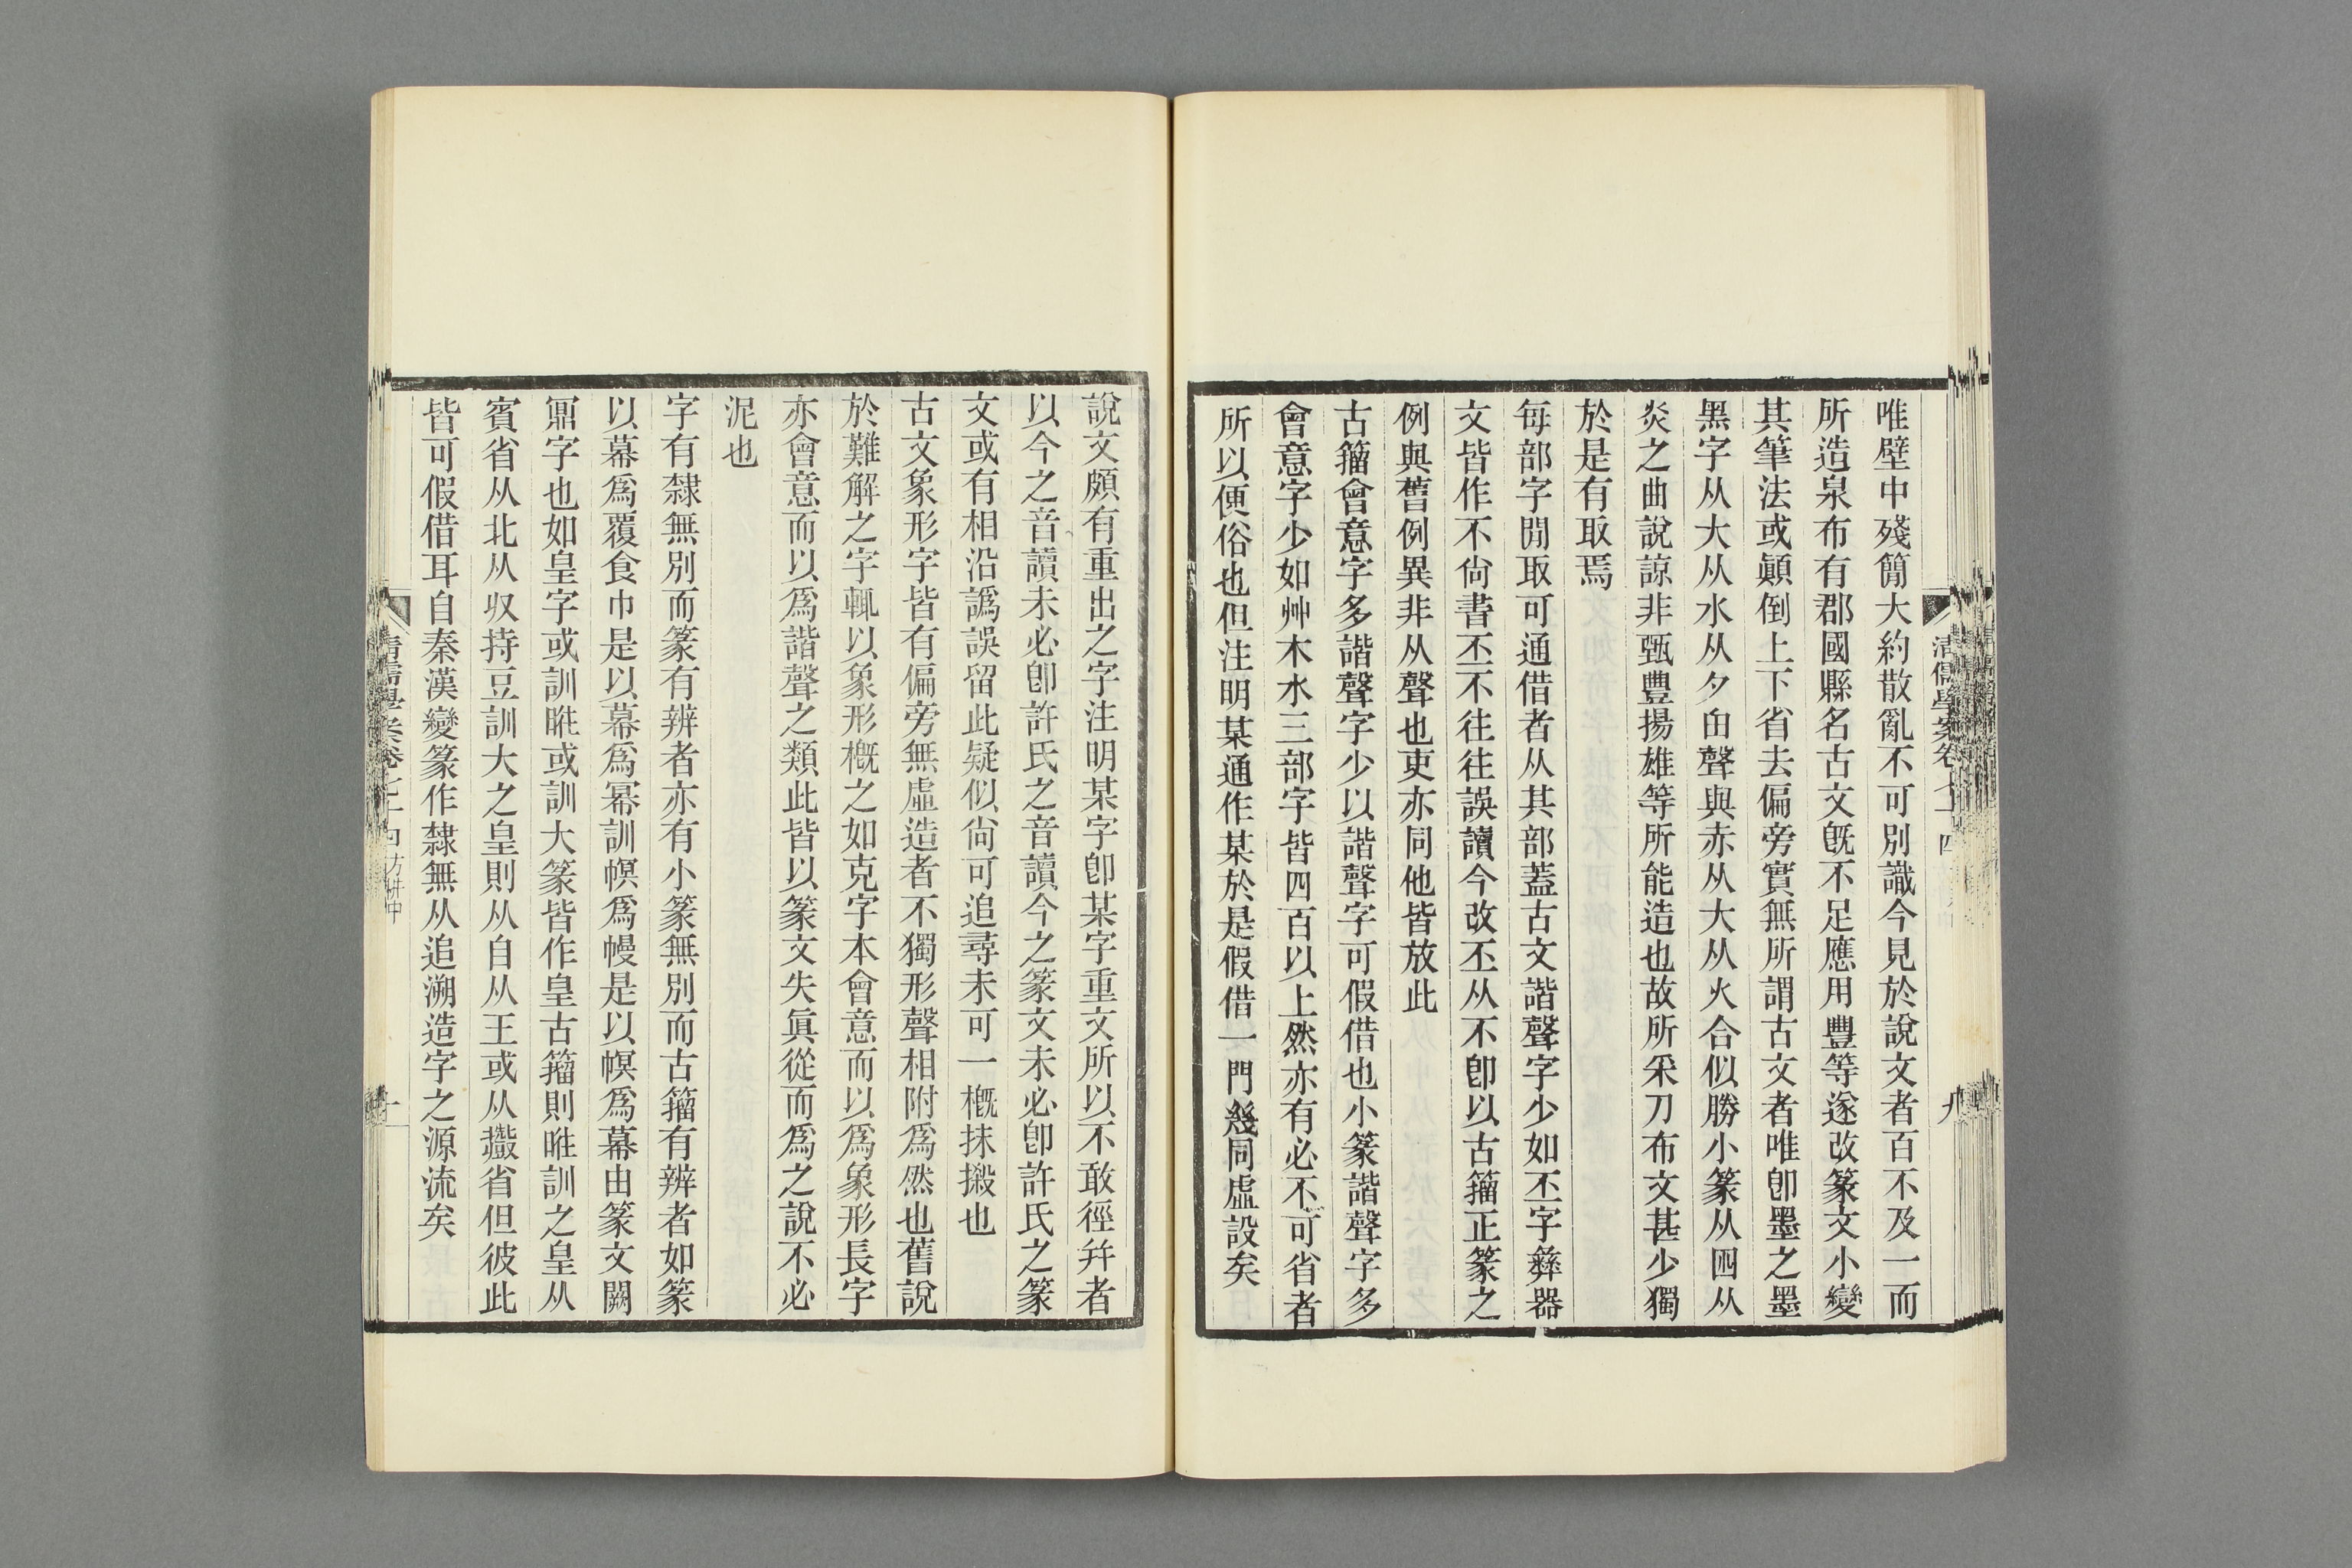 唯壁中殘簡大約散亂不可別識今見於說文者百不及一而
所造泉布有郡國縣名古文既不足應用豐等遂改篆文小變
其筆法或顚倒上下省去偏旁實無所謂古文者唯卽墨之墨
黑字从大从水从夕由聲與赤从大从火合似勝小篆从囮从
炎之曲說諒非甄豐揚雄等所能造也故所采刀布文甚少獨
於是有取焉
每部字閒取可通借者从其部蓋古文諧聲字少如丕字彝器
文皆作不尙書丕不往往誤讀今改丕从不卽以古籀正篆之
例與舊例異非从聲也吏亦同他皆放此
古籀會意字多諧聲字少以諧聲字可假借也小篆諧聲字多
會意字少如艸木水三部字皆四百以上然亦有必不可省者
所以便俗也但注明某通作某於是假借一門幾同虛設矣
清儒學案卷七十四
九
說文頗有重出之字注明某字卽某字重文所以不敢徑幷者
以今之音讀未必卽許氏之音讀今之篆文未必卽許氏之篆
文或有相沿譌誤留此疑似尙可追尋未可一概抹摋也
古文象形字皆有偏旁無虛造者不獨形聲相附爲然也舊說
於難解之字輒以象形槪之如克字本會意而以爲象形長字
亦會意而以爲諧聲之類此皆以篆文失眞從而爲之說不必
泥也
字有隸無別而篆有辨者亦有小篆無別而古籀有辨者如篆
以幕爲覆食巾是以幕爲冪訓幎爲幔是以幎爲幕由篆文闕
鼏字也如皇字或訓暀或訓大篆皆作皇古籀則暀訓之皇从
賓省从北从収持豆訓大之皇則从自从王或从䶫省但彼此
皆可假借耳自秦漢變篆作隸無从追溯造字之源流矣
清儒學案卷七十四 方耕中
十